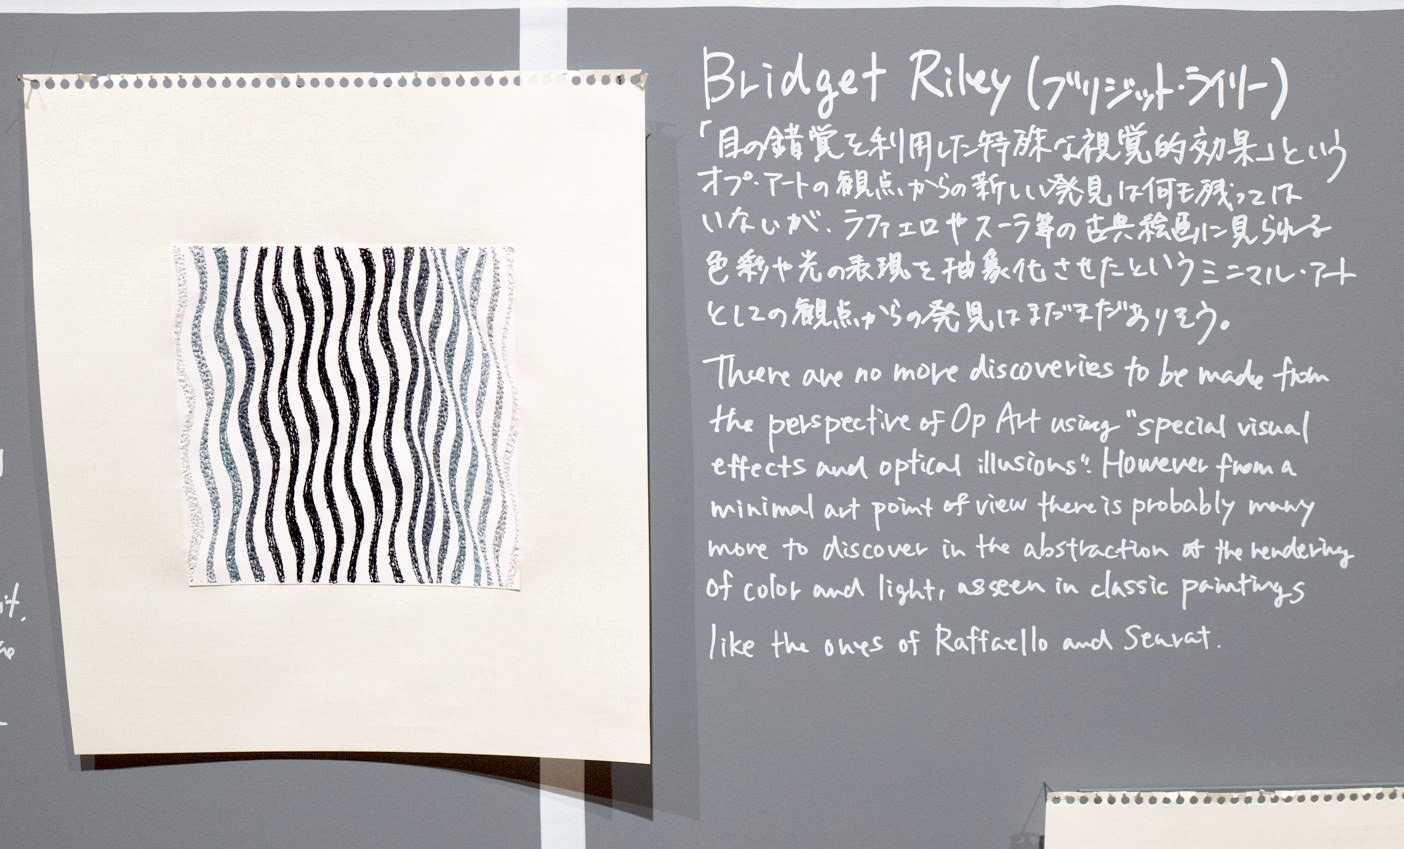 Bridget Riley (ブリジット・ライリー)
「目の錯覚を利用した特殊な視覚的効果」という
オプ・アートの観点からの新しい発見は何も残っては
いないが、ラファエロやスーラ等の古典絵画に見られる
色彩や光の表現を抽象化させたというミニマル・アート
としての観点からの発見はまだまだありそう。
There are no more discoveries to be made from
the perspective of Op Art using "special visual
effects and optical illusions". However from a
minimal art point of view there is probably many
more to discover in the abstraction of the rendering
of color and light, as seen in classic paintings
like the ones of Raffaello and Seurat.
it.